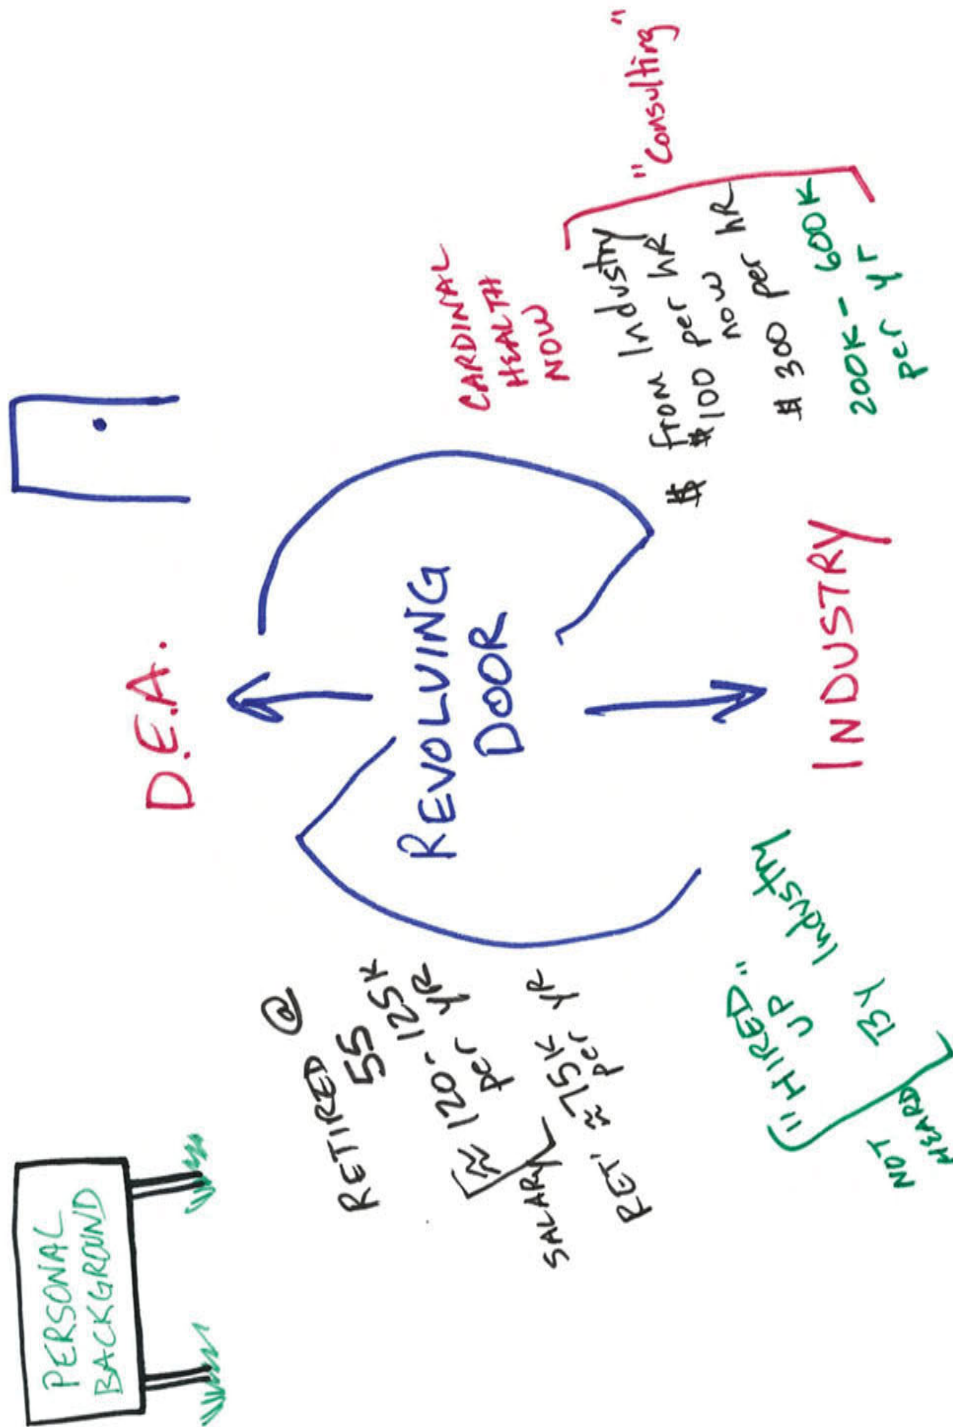 PERSONAL
BACKGROUND
D.E.A.
REVOLVING
DOOR
INDUSTRY
RETIRED @
55
[≈ 120-125K
per YR
SALARY
RET' ≈ 75K
per YR
"HIRED"
UP
BY Industry
NOT
HEARD
CARDINAL
HEALTH
NOW
$ from Industry
$100 per hR
now
$ 300 per hR
200K - 600K
per yr
"Consulting"